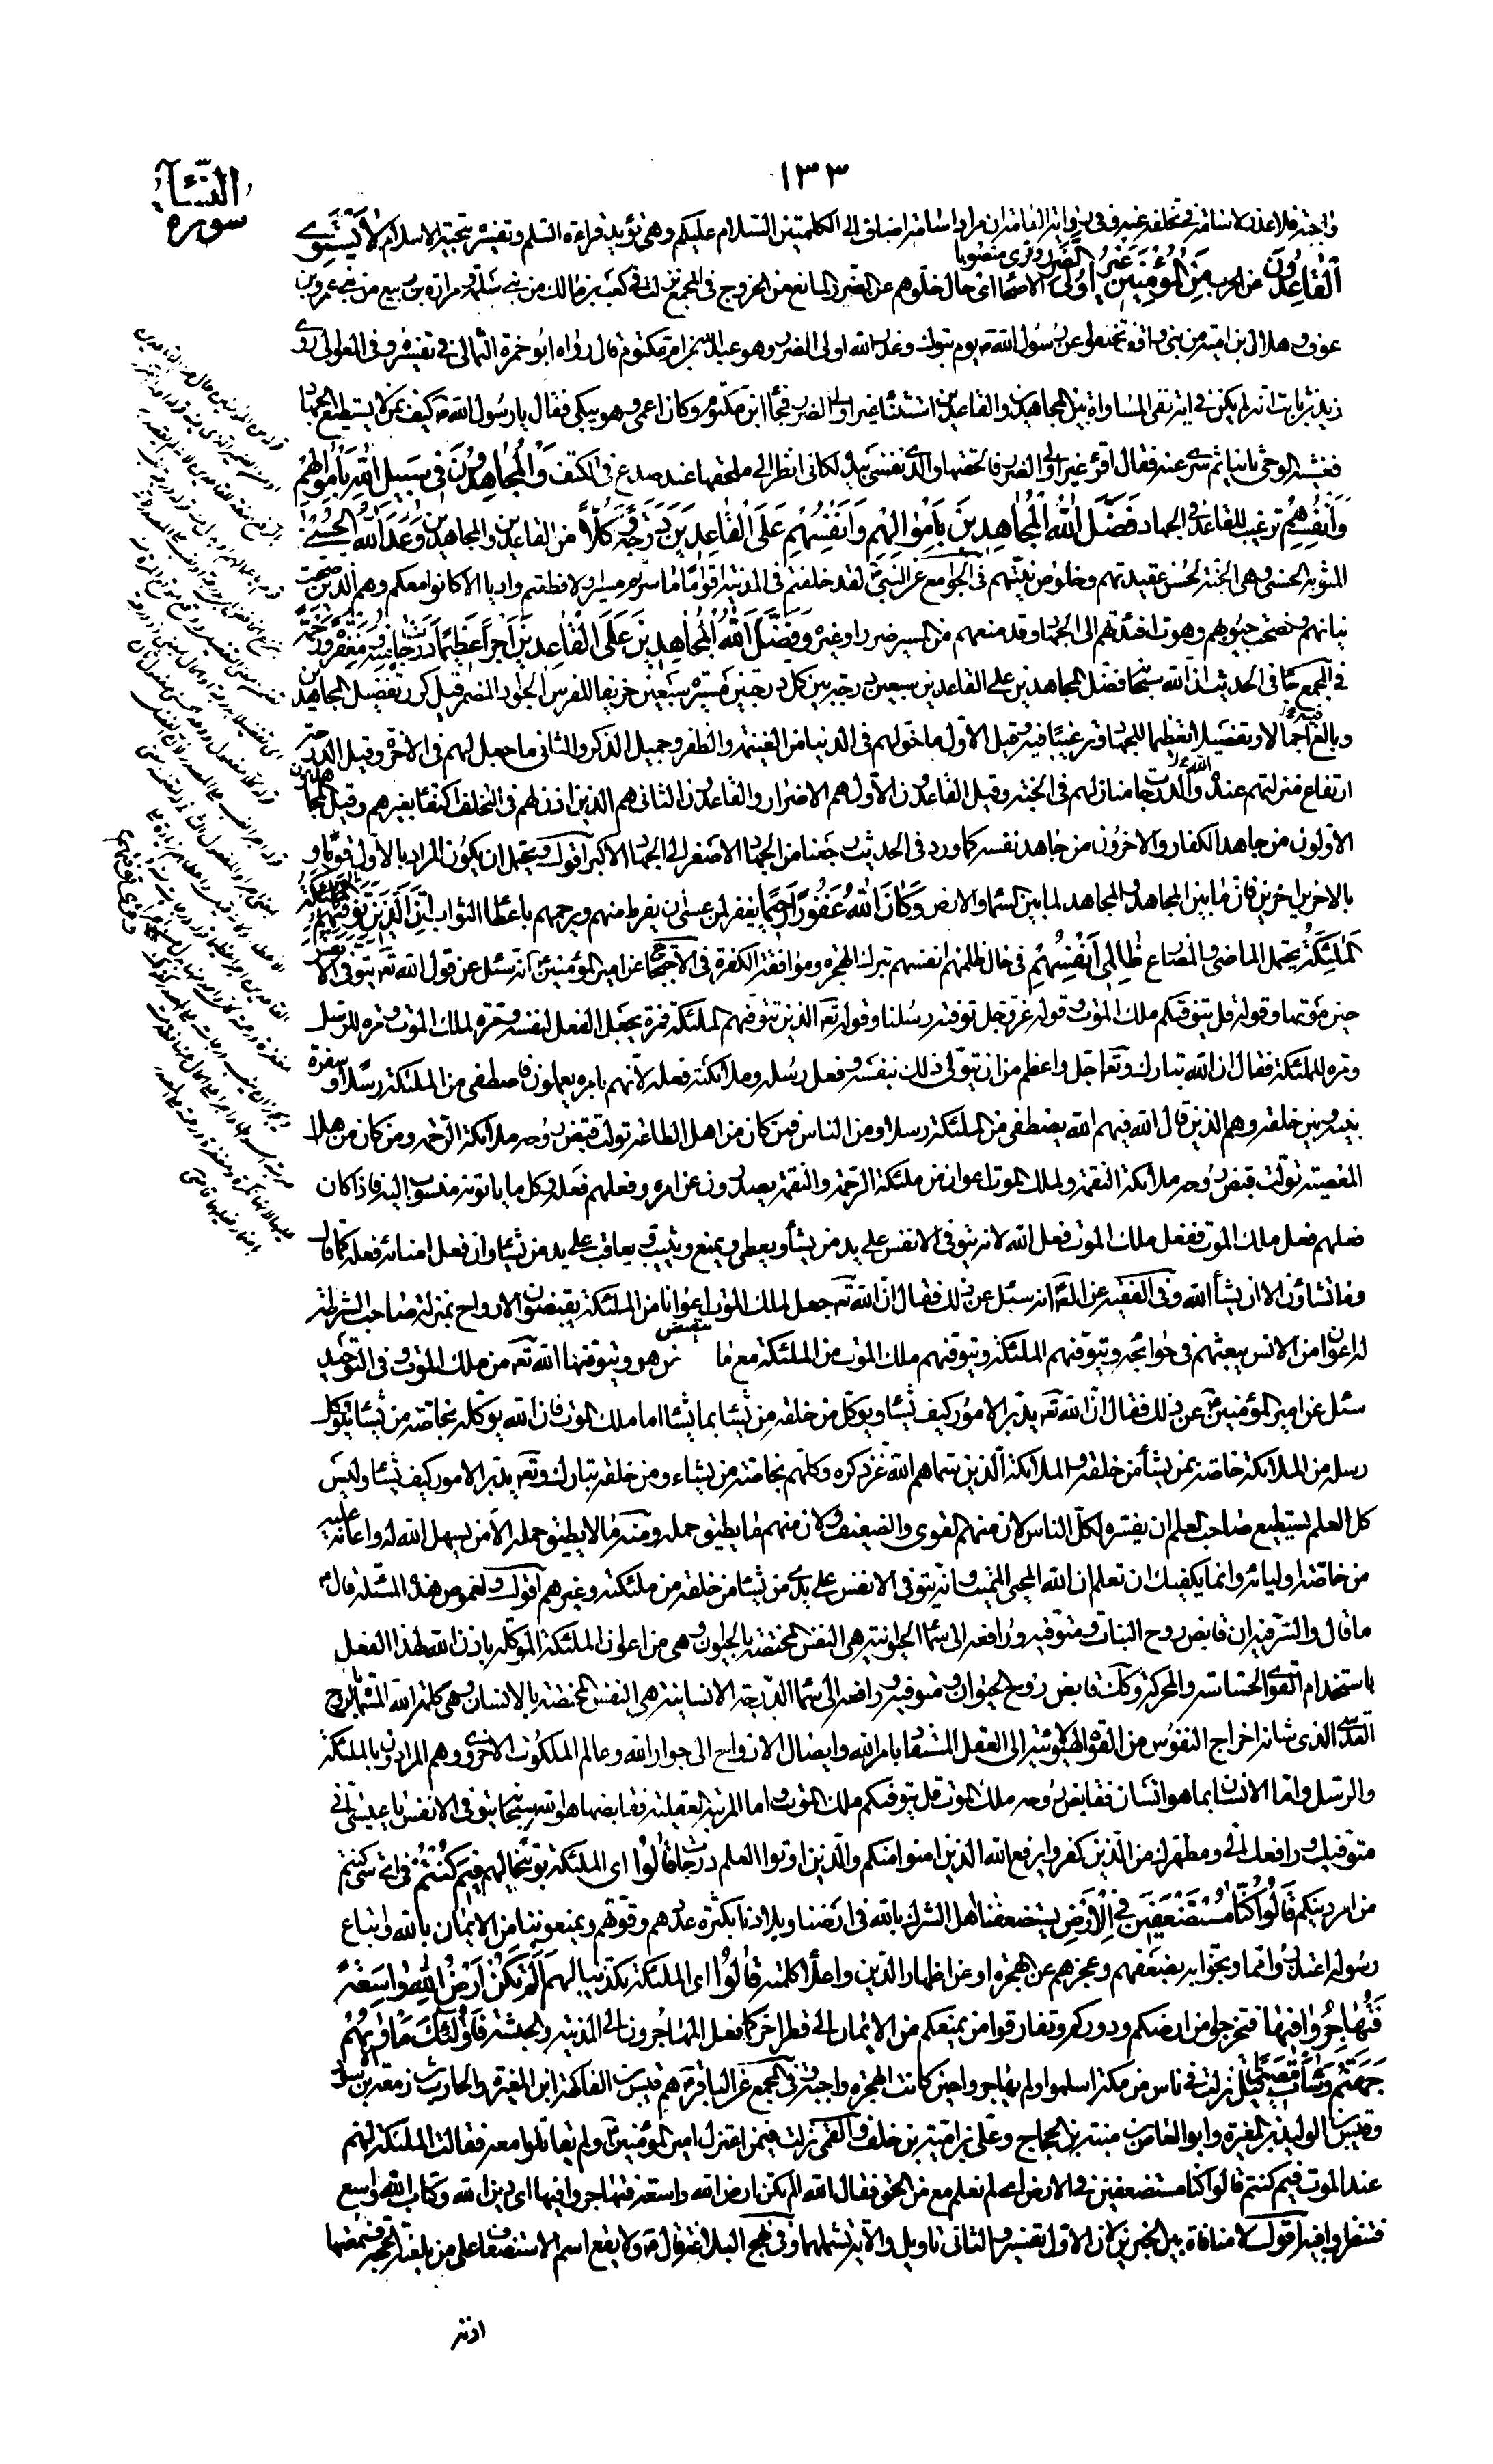 ١٣٣
سورة النساء
واجبة فلا عذر لاسامة في تخلفه عنه وفي رواية القمي ان مراد اسامة اضاف الى الكلمتين السلام عليكم وهي تؤيد قراءة السلم وتفسيره بتحية الاسلام لا يَسْتَوِي
الْقاعِدُونَ عن الحرب مِنَ الْمُؤْمِنِينَ غَيْرُ أُولِي الضَّرَرِ وقرئ منصوبا الاصحاء اي حال خلوهم عن الضرر المانع من الخروج في المجمع نزلت في كعب بن مالك من بني سلمة ومرارة بن ربيع من بني عمرو بن
عوف وهلال بن امية من بني واقف تخلفوا عن رسول الله ص يوم تبوك وعذر الله اولى الضرر وهو عبد الله بن ام مكتوم قال رواه ابو حمزة الثمالي في تفسيره وفي العوالي روى
زيد بن ثابت انه لم يكن في اية نفي المساواة بين المجاهدين والقاعدين استثناء غير اولي الضرر فجاء ابن مكتوم وكان اعمى وهو يبكي فقال يا رسول الله ص كيف بمن لا يستطيع الجهاد
فغشيه الوحي ثانيا ثم سري عنه فقال اقرء غير اولي الضرر فالحقتها والذي نفسي بيده لكاني انظر الى ملحقها عند صدع في الكتف وَالْمُجاهِدُونَ فِي سَبِيلِ اللهِ بِأَمْوالِهِمْ
وَأَنْفُسِهِمْ ترغيب للقاعد في الجهاد فَضَّلَ اللهُ الْمُجاهِدِينَ بِأَمْوالِهِمْ وَأَنْفُسِهِمْ عَلَى الْقاعِدِينَ دَرَجَةً وَكُلًّا من القاعدين والمجاهدين وَعَدَ اللهُ الْحُسْنى
المثوبة الحسنى وهي الجنة لحسن عقيدتهم وخلوص نيتهم في الجوامع عن النبي ص لقد خلفتم في المدينة اقواما ما سرتم مسيرا ولا قطعتم واديا الا كانوا معكم وهم الذين صحت
نياتهم ونصحت جيوبهم وهوت افئدتهم الى الجهاد وقد منعهم من المسير ضرر او غيره وَفَضَّلَ اللهُ الْمُجاهِدِينَ عَلَى الْقاعِدِينَ أَجْراً عَظِيماً دَرَجاتٍ مِنْهُ وَمَغْفِرَةً وَرَحْمَةً
في المجمع جاء في الحديث ان الله سبحانه فضل المجاهدين على القاعدين سبعين درجة بين كل درجتين مسيرة سبعين خريفا للفرس الجواد المضمر قيل كرر تفضيل المجاهدين
وبالغ فيه اجمالا وتفصيلا تعظيما للجهاد وترغيبا فيه وقيل الاول ما خولهم في الدنيا من الغنيمة والظفر وجميل الذكر والثاني ما جعل لهم في الاخرة وقيل الدرجة
ارتفاع منزلتهم عند الله والدرجات منازلهم في الجنة وقيل القاعدون الاول هم الاضراء والقاعدون الثاني هم الذين اذن لهم في التخلف اكتفاء بغيرهم وقيل المجاهدون
الاولون من جاهد الكفار والاخرون من جاهد نفسه كما ورد في الحديث رجعنا من الجهاد الاصغر الى الجهاد الاكبر اقول ويحتمل ان يكون المراد بالاول قوما و
بالاخرين اخرين فان ما بين المجاهد والمجاهد لما بين السماء والارض وَكانَ اللهُ غَفُوراً رَحِيماً يغفر لمن عسى ان يفرط منهم ويرحمهم باعطاء الثواب إِنَّ الَّذِينَ تَوَفَّاهُمُ
الْمَلائِكَةُ يحتمل الماضي والمضارع ظالِمِي أَنْفُسِهِمْ في حال ظلمهم انفسهم بترك الهجرة وموافقة الكفرة في الاحتجاج عن امير المؤمنين ع انه سئل عن قول الله تعه يتوفى الانفس
حين موتها وقوله قل يتوفيكم ملك الموت وقوله عز وجل توفته رسلنا وقوله تعه الذين تتوفيهم الملئكة فمرة يجعل الفعل لنفسه ومرة لملك الموت ومرة للرسل
ومرة للملئكة فقال ان الله تبارك وتعه اجل واعظم من ان يتولى ذلك بنفسه وفعل رسله وملائكته فعله لانهم بامره يعملون فاصطفى من الملئكة رسلا وسفرة
بينه وبين خلقه وهم الذين قال الله فيهم الله يصطفي من الملئكة رسلا ومن الناس فمن كان من اهل الطاعة تولت قبض روحه ملائكة الرحمة ومن كان من اهل
المعصية تولت قبض روحه ملائكة النقمة ولملك الموت اعوان من ملئكة الرحمة والنقمة يصدرون عن امره وفعلهم فعله وكل ما ياتونه منسوب اليه فاذا كان
فعلهم فعل ملك الموت ففعل ملك الموت فعل الله لانه يتوفى الانفس على يد من يشاء ويعطي ويمنع ويثيب ويعاقب على يد من يشاء وان فعل امنائه فعله كما قال
وما تشاؤن الا ان يشاء الله وفي الفقيه عن الص انه سئل عن ذلك فقال ان الله تعه جعل لملك الموت اعوانا من الملئكة يقبضون الارواح بمنزلة صاحب الشرطة
له اعوان من الانس يبعثهم في حوائجه وتتوفيهم الملئكة ويتوفيهم ملك الموت من الملئكة مع ما يقبض هو ويتوفيها الله تعه من ملك الموت وفي التوحيد
سئل عن امير المؤمنين ع عن ذلك فقال ان الله تعه يدبر الامور كيف يشاء ويوكل من خلقه من يشاء بما يشاء اما ملك الموت فان الله يوكله بخاصة من يشاء ويوكل
رسله من الملائكة خاصة بمن يشاء من خلقه والملائكة الذين سماهم الله عز ذكره وكلهم بخاصة من يشاء ومن خلقه تبارك وتعه يدبر الامور كيف يشاء وليس
كل العلم يستطيع صاحب العلم ان يفسره لكل الناس لان منهم القوي والضعيف ولان منهم ما يطيق حمله ومنه ما لا يطيق حمله الا من يسهل الله له واعانه عليه
من خاصة اوليائه وانما يكفيك ان تعلم ان الله المحيي المميت وانه يتوفى الانفس على يدي من يشاء من خلقه من ملئكته وغيرهم اقول ولغموض هذه المسئلة قال ع
ما قال والسر فيه ان قابض روح النبات ومتوفيه ورافعه الى سماء الحيوانية هي النفس المختصة بالحيوان وهي من اعوان الملئكة الموكلة باذن الله لهذا الفعل
باستخدام القوى الحساسة والمحركة وكك قابض روح الحيوان ومتوفيه ورافعه الى سماء الدرجة الانسانية هي النفس المختصة بالانسان وهي كلمة الله المسماة بالروح
القدسي الذي شانه اخراج النفوس من القوة الهيولانية الى العقل المستفاد بامر الله وايصال الارواح الى جوار الله وعالم الملكوت الاخروي وهم المرادون بالملئكة
والرسل واما الانسان بما هو انسان فقابض روحه ملك الموت قل يتوفيكم ملك الموت واما المرتبة العقلية فقابضها هو الله سبحانه يتوفى الانفس يا عيسى اني
متوفيك ورافعك الي ومطهرك من الذين كفروا يرفع الله الذين امنوا منكم والذين اوتوا العلم درجات قالُوا اي الملئكة توبيخا لهم فِيمَ كُنْتُمْ في اي شيء كنتم
من امر دينكم قالُوا كُنَّا مُسْتَضْعَفِينَ فِي الْأَرْضِ يستضعفنا اهل الشرك بالله في ارضنا وبلادنا بكثرة عددهم وقوتهم ويمنعوننا من الايمان بالله واتباع
رسوله اعتذروا مما وبخوا به بضعفهم وعجزهم عن الهجرة او عن اظهار الدين واعلاء كلمته قالُوا اي الملئكة تكذيبا لهم أَلَمْ تَكُنْ أَرْضُ اللهِ واسِعَةً
فَتُهاجِرُوا فِيها فتخرجوا من ارضكم ودوركم وتفارقوا من يمنعكم من الايمان الى قطر اخر كما فعل المهاجرون الى المدينة والحبشة فَأُولئِكَ مَأْواهُمْ
جَهَنَّمُ وَساءَتْ مَصِيراً قيل نزلت في ناس من مكة اسلموا ولم يهاجروا حين كانت الهجرة واجبة وفي المجمع عن الباقر ع هم قيس بن الفاكهة ابن المغيرة والحارث بن زمعة بن الاسود
وقيس بن الوليد بن المغيرة وابو العاص بن منبه بن الحجاج وعلي بن امية بن خلف والقمي نزلت فيمن اعتزل امير المؤمنين ع ولم يقاتلوا معه فقالت الملئكة لهم
عند الموت فيم كنتم قالوا كنا مستضعفين في الارض اي لم نعلم مع من الحق فقال الله الم تكن ارض الله واسعة فتهاجروا فيها اي دين الله وكتاب الله واسع
فتنظروا فيه اقول لا منافاة بين الخبرين لان الاول تفسير والثاني تاويل والاية تشملهما وفي نهج البلاغة قال ع ولا يقع اسم الاستضعاف على من بلغته الحجة فسمعتها
اذنه